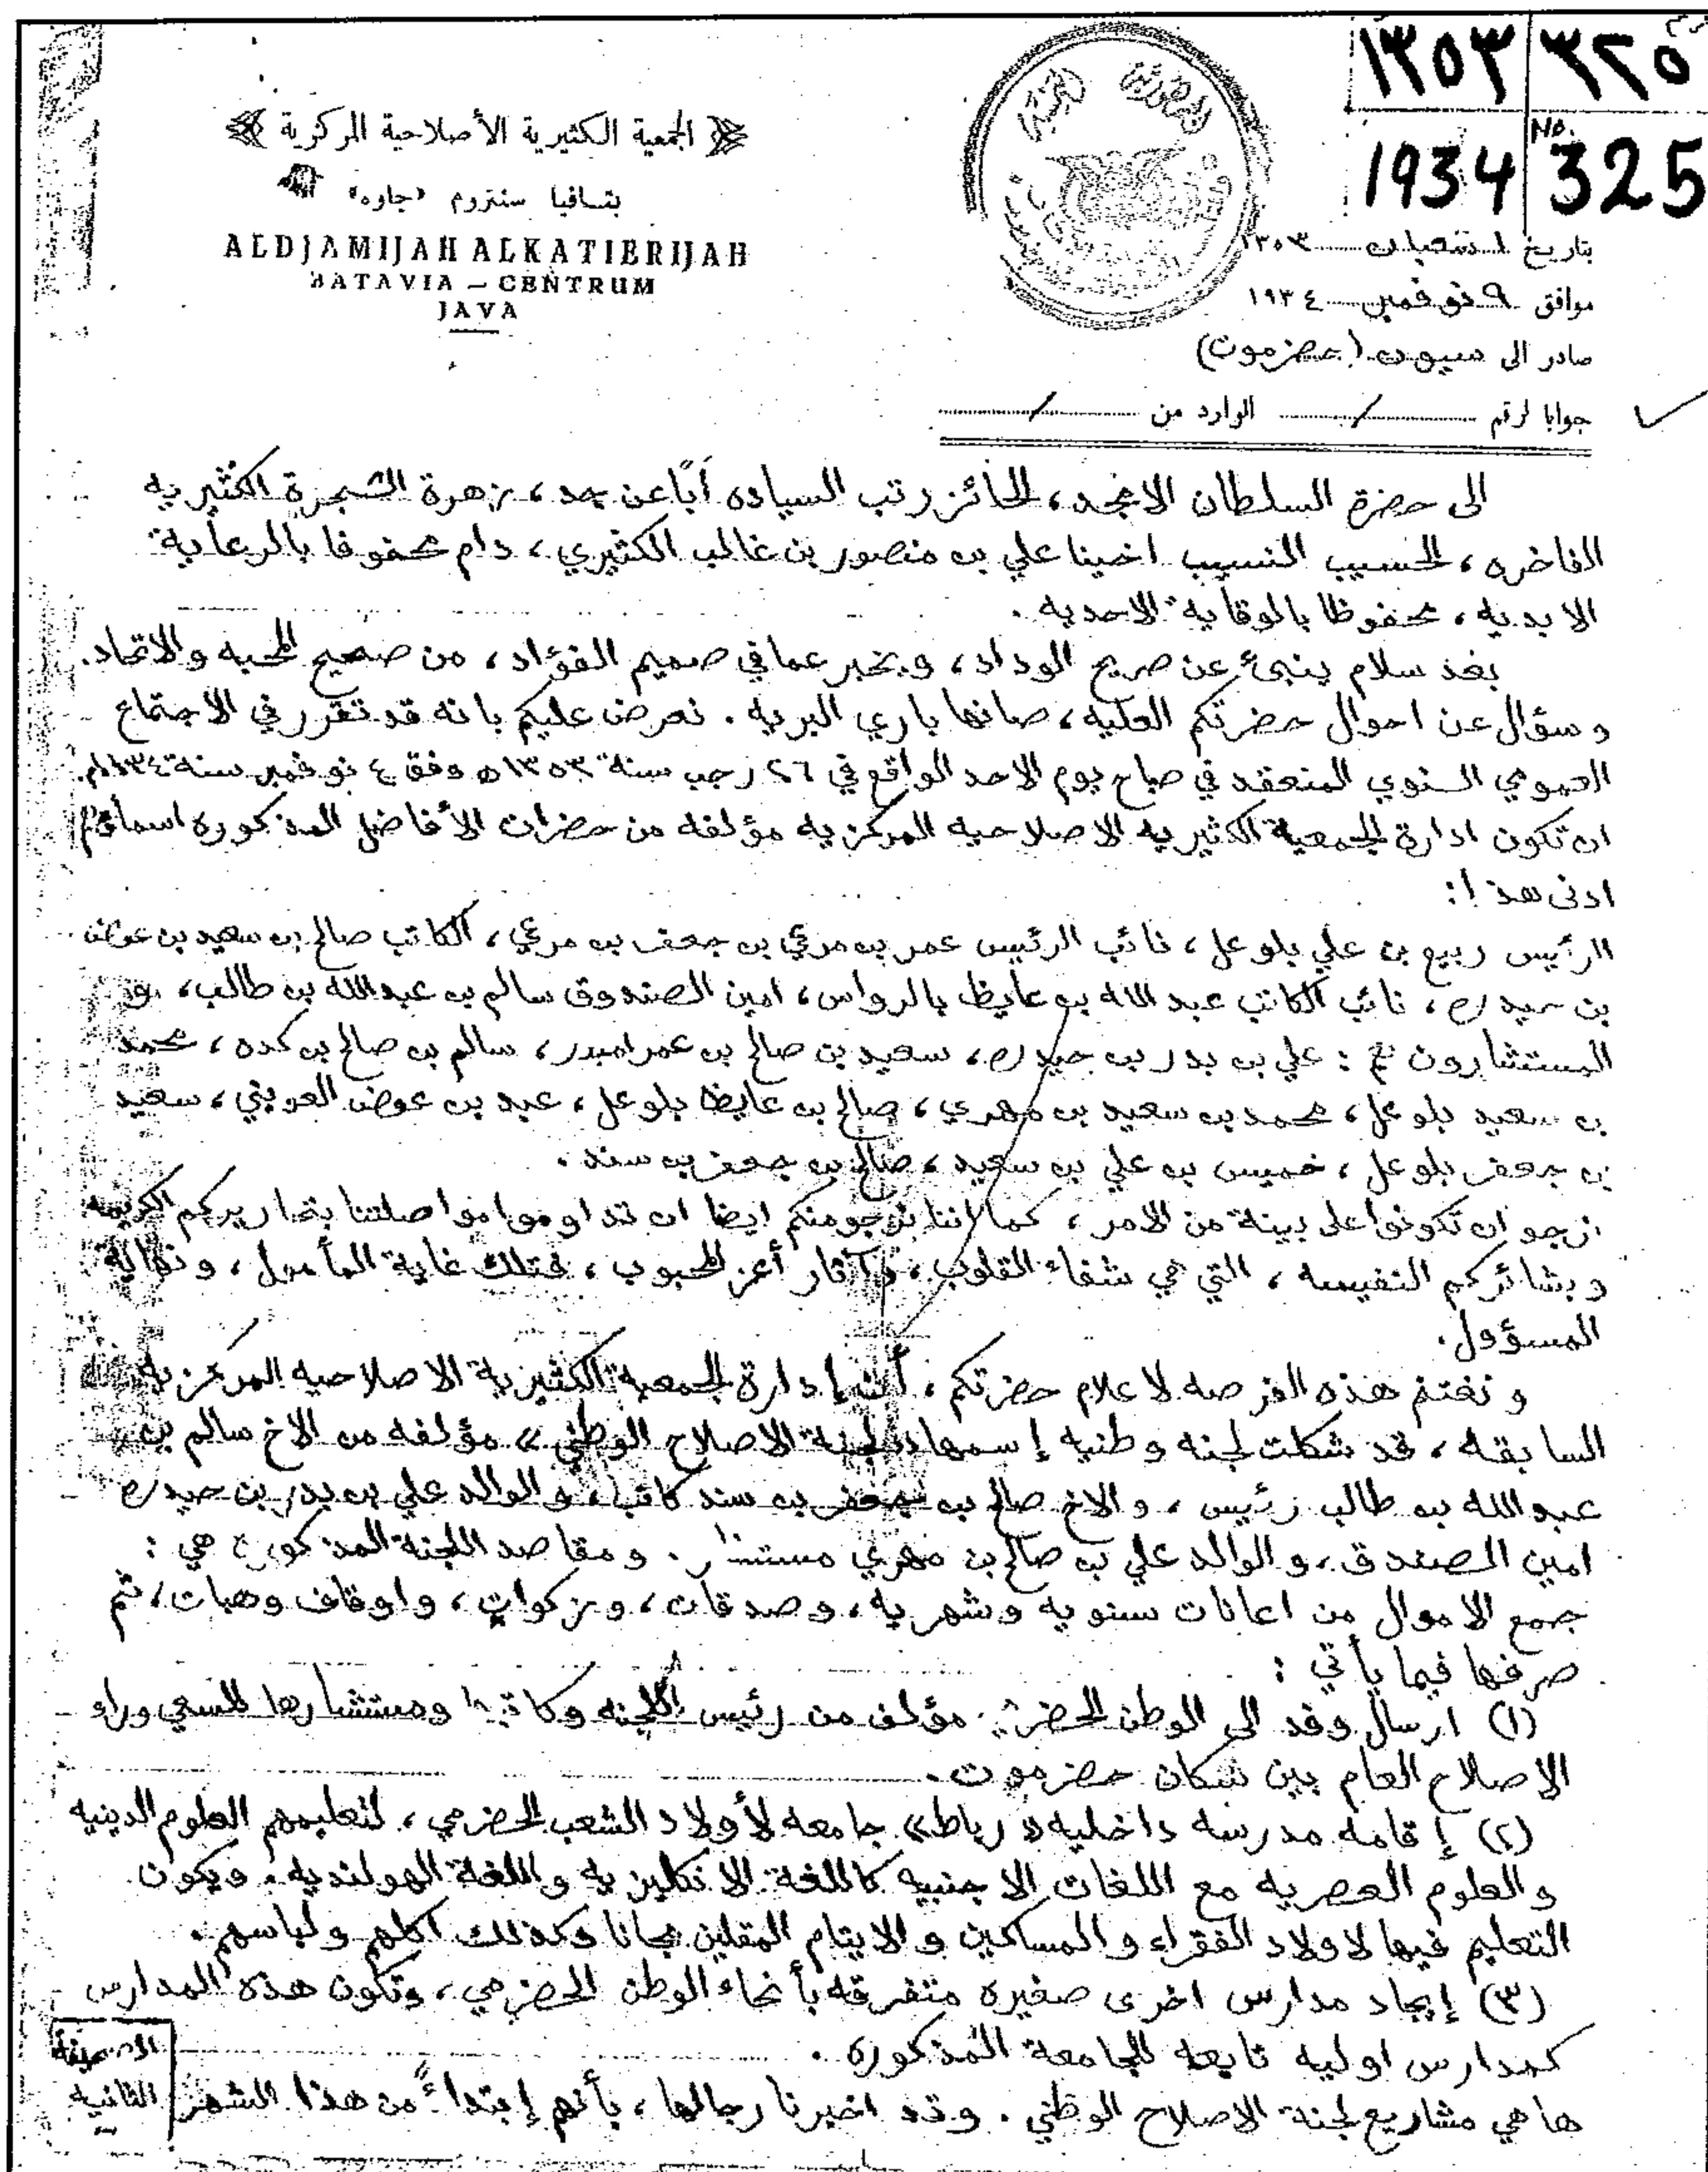 ١٣٥٣ ٣٢٥
1934 No. 325
الجمعية الكثيرية الأصلاحية المركزية
بتافيا سنتروم «جاوه»
ALDJAMIJAH ALKATIERIJAH
BATAVIA – CENTRUM
JAVA
بتاريخ ١ شعبان ١٣٥٣
موافق ٩ نوفمبر ١٩٣٤
صادر الى سيون (حضرموت)
جوابا لرقم / الوارد من /
الى حضرة السلطان الامجد، الحائز رتب السياده أبًا عن جد، زهرة الشجرة الكثيريه
الفاخره، الحسيب النسيب اخينا علي بن منصور بن غالب الكثيري، دام محفوفا بالرعاية
الابديه، محفوظا بالوقاية الاحديه.
بعد سلام ينبئ عن صريح الوداد، ويخبر عما في صميم الفؤاد، من صحيح المحبه والاتحاد.
وسؤال عن احوال حضرتكم العليه، صانها باري البريه. نعرض عليكم بانه قد تقرر في الاجتماع
العمومي السنوي المنعقد في صباح يوم الاحد الواقع في ٢٦ رجب سنة ١٣٥٣ه وفق ٤ نوفمبر سنة ١٩٣٤م.
ان تكون ادارة الجمعية الكثيريه الاصلاحيه المركزيه مؤلفه من حضرات الأفاضل المذكوره اسمأؤهم
ادنى هذا:
الرئيس ربيع بن علي بلوعل، نائب الرئيس عمر بن مرعي بن جعفر بن مرعي، الكاتب صالح بن سعيد بن عوض
بن حيدره، نائب الكاتب عبد الله بن عايظ بالرواس، امين الصندوق سالم بن عبدالله بن طالب،
المستشارون هم: علي بن بدر بن حيدره، سعيد بن صالح بن عمر امبدر، سالم بن صالح بن كده، محمد
بن سعيد بلوعل، محمد بن سعيد بن مهري، صالح بن عايظ بلوعل، عبد بن عوض العويني، سعيد
بن جعفر بلوعل، خميس بن علي بن سعيد، صالح بن جعفر بن سند.
نرجو ان تكونوا على بينة من الامر، كما اننا نرجو منكم ايضا ان تداوموا مواصلتنا بتحاريركم الكريمه
وبشائركم النفيسه، التي هي شفاء القلوب، وآثار أعز المحبوب، فتلك غاية المأمول، ونهاية
المسؤول.
ونغتنم هذه الفرصه لاعلام حضرتكم، أن إدارة الجمعية الكثيرية الاصلاحيه المركزيه
السابقه، قد شكلت لجنه وطنيه إسمها «لجنة الاصلاح الوطني» مؤلفه من الاخ سالم بن
عبدالله بن طالب رئيس، والاخ صالح بن جعفر بن سند كاتب، والوالد علي بن بدر بن حيدره
امين الصندق، والوالد علي بن صالح بن مهري مستشار. ومقاصد اللجنة المذكورة هي:
جمع الاموال من اعانات سنويه وشهريه، وصدقات، وزكوات، واوقاف وهبات، ثم
صرفها فيما يأتي:
(١) ارسال وفد الى الوطن الحضرمي مؤلف من رئيس اللجنه وكاتبها ومستشارها للسعي وراء
الاصلاح العام بين سكان حضرموت.
(٢) إقامه مدرسه داخليه «رباط» جامعه لأولاد الشعب الحضرمي، لتعليمهم العلوم الدينيه
والعلوم العصريه مع اللغات الاجنبيه كاللغة الانكليزيه واللغة الهولنديه. ويكون
التعليم فيها لاولاد الفقراء والمساكين والايتام المقلين مجانا وكذلك اكلهم ولباسهم.
(٣) إيجاد مدارس اخرى صغيره متفرقه بأنحاء الوطن الحضرمي، وتكون هذه المدارس
كمدارس اوليه تابعه للجامعة المذكوره.
ها هي مشاريع لجنة الاصلاح الوطني. وقد اخبرنا رجالها، بأنهم إبتداءً من هذا الشهر
الصحيفة
الثانيه